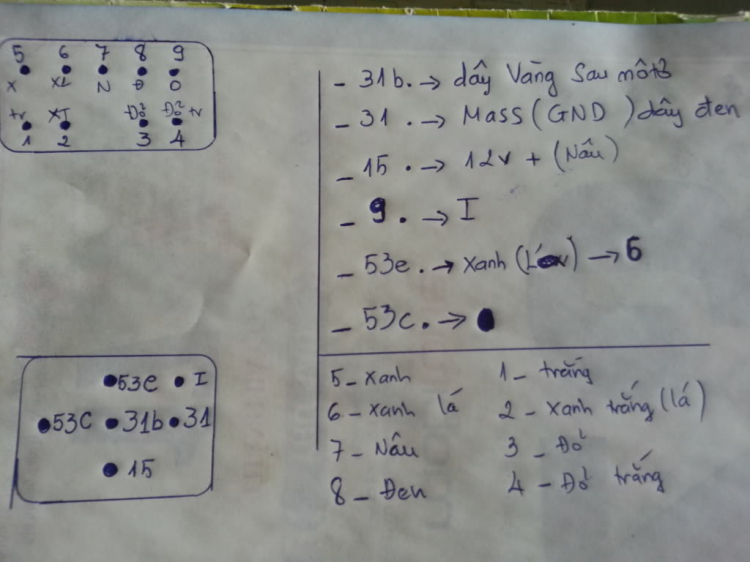 5 6 7 8 9
X XL N Đ O
tr XT Đỏ Đỏ tr
1 2 3 4
- 31b. → dây Vàng Sau môtơ
- 31. → Mass (GND) dây đen
- 15. → 12v + (Nâu)
- 9. → I
- 53e. → xanh → 6
- 53c. →
53e I
53C 31b 31
15
5 - xanh
6 - xanh lá
7 - Nâu
8 - Đen
1 - trắng
2 - xanh trắng (lá)
3 - Đỏ
4 - Đỏ trắng